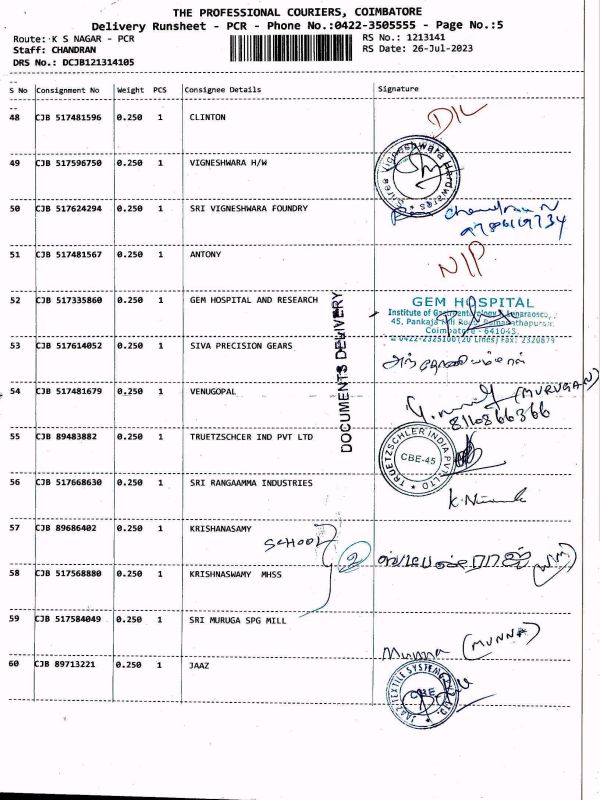 THE PROFESSIONAL COURIERS, COIMBATORE
Delivery Runsheet - PCR - Phone No.:0422-3505555 - Page No.:5
Route: K S NAGAR - PCR
RS No.: 1213141
Staff: CHANDRAN
RS Date: 26-Jul-2023
DRS No.: DCJB121314105
S No Consignment No Weight PCS Consignee Details Signature
48 CJB 517481596 0.250 1 CLINTON
D/L
49 CJB 517596750 0.250 1 VIGNESHWARA H/W
Shree Vigneshwara Hardwares
50 CJB 517624294 0.250 1 SRI VIGNESHWARA FOUNDRY
51 CJB 517481567 0.250 1 ANTONY
N/P
52 CJB 517335860 0.250 1 GEM HOSPITAL AND RESEARCH
GEM HOSPITAL
Institute of
45, Pankaja Mill Road, Ramanathapuram,
Coimbatore - 641045.
0422-2325100 (20 Lines) Fax: 2320879
DOCUMENTS DELIVERY
53 CJB 517614052 0.250 1 SIVA PRECISION GEARS
54 CJB 517481679 0.250 1 VENUGOPAL
(MURUGAN)
8110866366
55 CJB 89483882 0.250 1 TRUETZSCHCER IND PVT LTD
TRUETZSCHLER INDIA PVT. LTD
CBE-45
56 CJB 517668630 0.250 1 SRI RANGAAMMA INDUSTRIES
57 CJB 89686402 0.250 1 KRISHANASAMY
SCHOOL
58 CJB 517568880 0.250 1 KRISHNASWAMY MHSS
59 CJB 517584049 0.250 1 SRI MURUGA SPG MILL
Munna (MUNNA)
60 CJB 89713221 0.250 1 JAAZ
JAAZ TEXTILE SYSTEMS
CBE